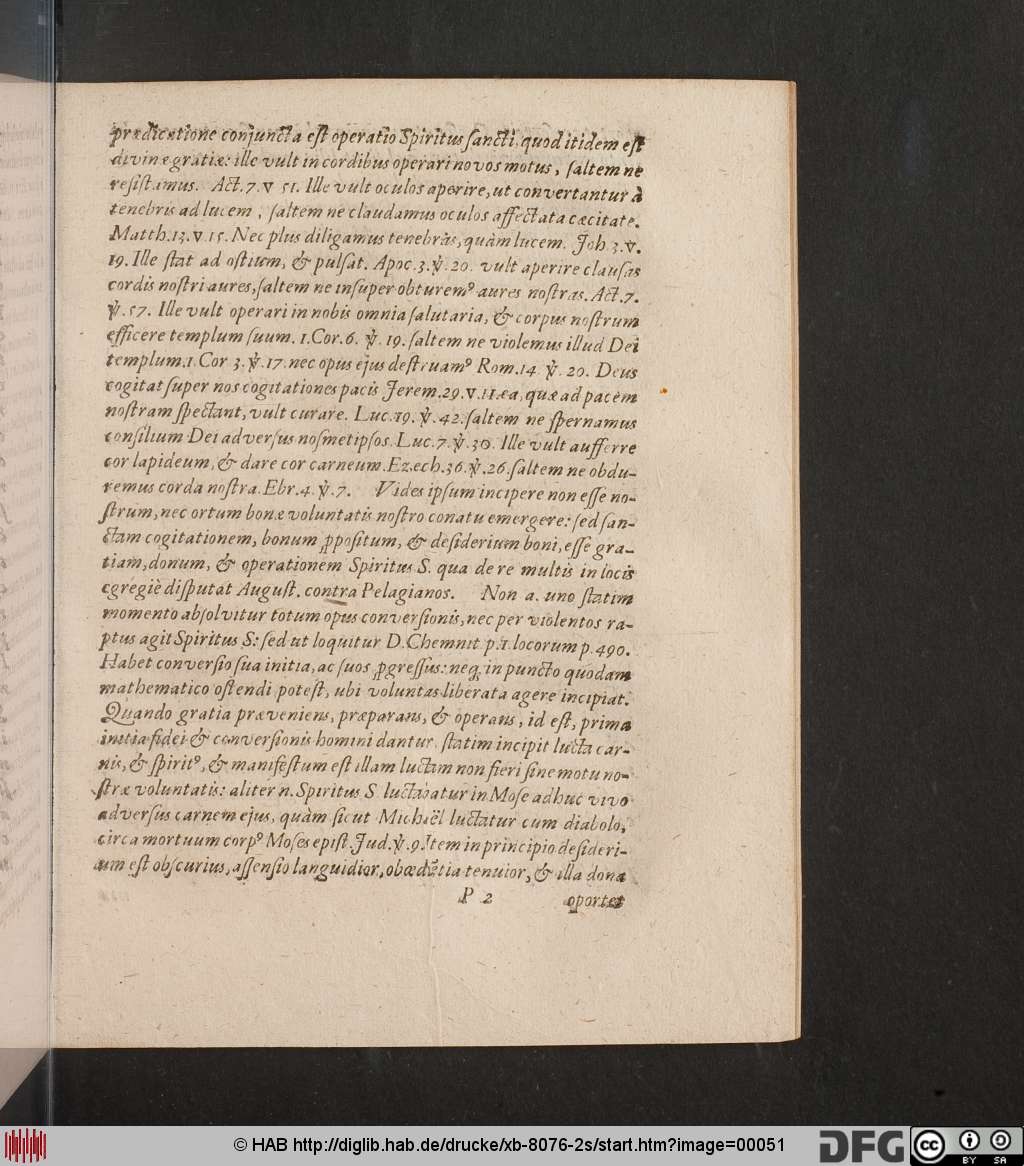 prædicatione conjuncta est operatio Spiritus sancti, quod itidem est
divinæ gratiæ: ille vult in cordibus operari novos motus, saltem ne
resistamus. Act. 7. v 51. Ille vult oculos aperire, ut convertantur à
tenebris ad lucem, saltem ne claudamus oculos affectata cæcitate.
Matth. 13. v. 15. Nec plus diligamus tenebras, quàm lucem. Joh. 3. v.
19. Ille stat ad ostium, & pulsat. Apoc. 3. ꝟ. 20. vult aperire clausas
cordis nostri aures, saltem ne insuper obturemꝰ aures nostras. Act. 7.
ꝟ. 57. Ille vult operari in nobis omnia salutaria, & corpus nostrum
efficere templum suum. 1. Cor. 6. ꝟ. 19. saltem ne violemus illud Dei
templum. 1. Cor 3. ꝟ. 17. nec opus ejus destruamꝰ Rom. 14. ꝟ. 20. Deus
cogitat super nos cogitationes pacis Jerem. 29. v. 11. ea, quæ ad pacem
nostram spectant, vult curare. Luc. 19. ꝟ. 42. saltem ne spernamus
consilium Dei adversus nosmetipsos. Luc. 7. ꝟ. 30. Ille vult aufferre
cor lapideum, & dare cor carneum. Ezech. 36. ꝟ. 26. saltem ne obdu-
remus corda nostra. Ebr. 4. ꝟ. 7. Vides ipsum incipere non esse no-
strum, nec ortum bonæ voluntatis nostro conatu emergere: sed san-
ctam cogitationem, bonum ꝓpositum, & desiderium boni, esse gra-
tiam, donum, & operationem Spiritus S. qua de re multis in locis
egregiè disputat August. contra Pelagianos. Non a. uno statim
momento absolvitur totum opus conversionis, nec per violentos ra-
ptus agit Spiritus S: sed ut loquitur D. Chemnit. p. 1. locorum p. 490.
Habet conversio sua initia, ac suos ꝓgressus: neq; in puncto quodam
mathematico ostendi potest, ubi voluntas liberata agere incipiat.
Quando gratia præveniens, præparans, & operans, id est, prima
initia fidei & conversionis homini dantur, statim incipit lucta car-
nis, & spiritꝰ, & manifestum est illam luctam non fieri sine motu no-
stræ voluntatis: aliter n. Spiritus S. luctabatur in Mose adhuc vivo
adversus carnem ejus, quàm sicut Michaël luctatur cum diabolo,
circa mortuum corpꝰ Moses epist. Jud. ꝟ. 9. Item in principio desideri-
um est obscurius, assensio languidior, obædiẽtia tenuior, & illa dona
P 2 oportet
© HAB http://diglib.hab.de/drucke/xb-8076-2s/start.htm?image=00051
DFG
cc BY SA